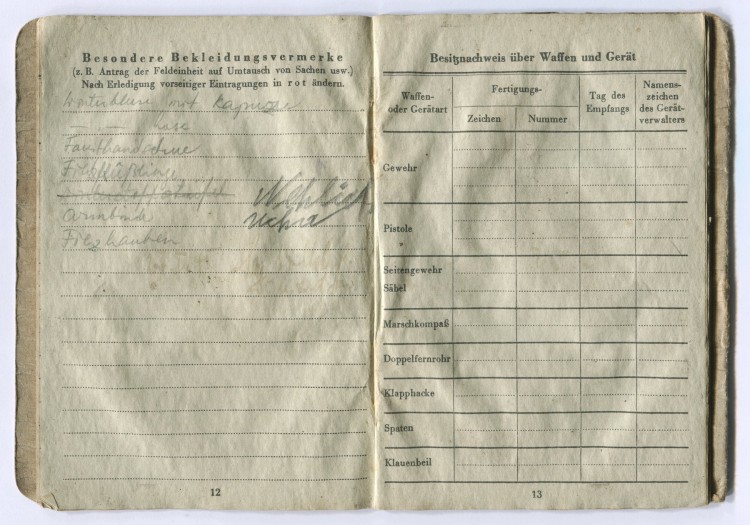 Besondere Bekleidungsvermerke
(z. B. Antrag der Feldeinheit auf Umtausch von Sachen usw.)
Nach Erledigung vorseitiger Eintragungen in rot ändern.
mit Kapuze
— " — hose
Fausthandschue
Filz
Armbinde
Filzhauben
12
Besitznachweis über Waffen und Gerät
Waffen-
oder Gerätart
Fertigungs-
Zeichen
Nummer
Tag des
Empfangs
Namens-
zeichen
des Gerät-
verwalters
Gewehr
Pistole
Seitengewehr
Säbel
Marschkompaß
Doppelfernrohr
Klapphacke
Spaten
Klauenbeil
13